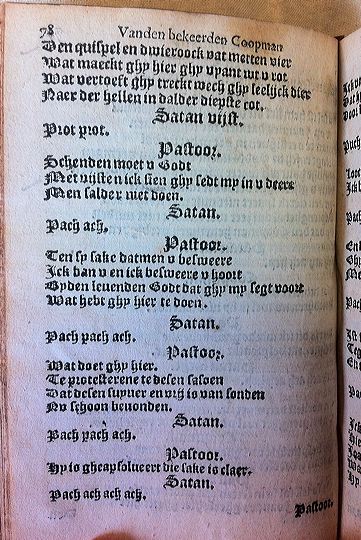 78 Vanden bekeerden Coopman
Den quispel en dwieroock vat metten vier
Wat maeckt ghy hier ghy vpant wt v rot
Wat vertoeft ghy treckt wech ghy leelijck dier
Naer der hellen in dalder diepste cot.
Satan vijst.
Prot prot.
Pastoor.
Schenden moet v Godt
Met vijsten ick sien ghy sedt my in v deere
Men salder niet doen.
Satan.
Pach ach.
Pastoor.
Ten sy sake datmen v besweere
Ick ban v en ick besweere v hoort
Byden leuenden Godt dat ghy my segt voort
Wat hebt ghy hier te doen.
Satan.
Pach pach ach.
Pastoor.
Wat doet ghy hier.
Te protesterene te desen sasoen
Dat desen supuer en vrij is van sonden
Nv schoon beuonden.
Satan.
Pach pach ach.
Pastoor.
Hy is gheapsolueert die sake is claer.
Satan.
Pach ach ach ach.
Pastoor.